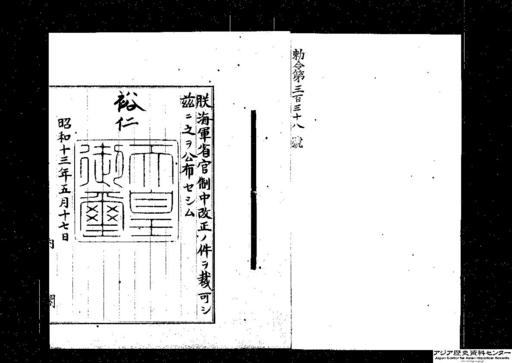 勅令第三百三十八號
朕海軍省官制中改正ノ件ヲ裁可シ
茲ニ之ヲ公布セシム
裕仁
天皇御璽
昭和十三年五月十七日
内閣
アジア歴史資料センター
Japan Center for Asian Historical Records